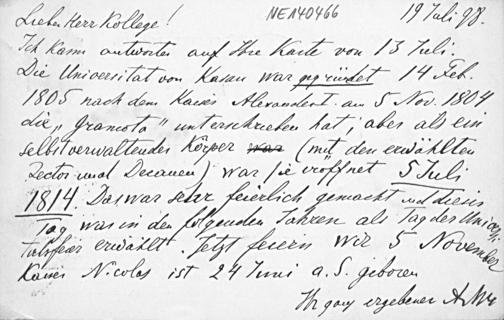 Lieber Herr Kollege! NE140466 19 Juli 98.
Ich kann antworten auf Ihre Karte von 13 Juli.
Die Universität von Kasan war gegründet 14 Feb.
1805 nach dem Kaiser Alexander I. am 5 Nov. 1804
die „Gramota“ unterschrieben hat; aber als ein
selbstverwaltendes Körper war (mit den erwählten
Rector und Decanen) war sie eröffnet 5 Juli
1814. Das war sehr feierlich gemacht und diesen
Tag was in den folgenden Jahren als Tag des Univer-
erwählt. Jetzt feiern wir 5 November
Kaiser Nicolas ist 24 Juni a. S. geboren
Ihr ganz ergebener